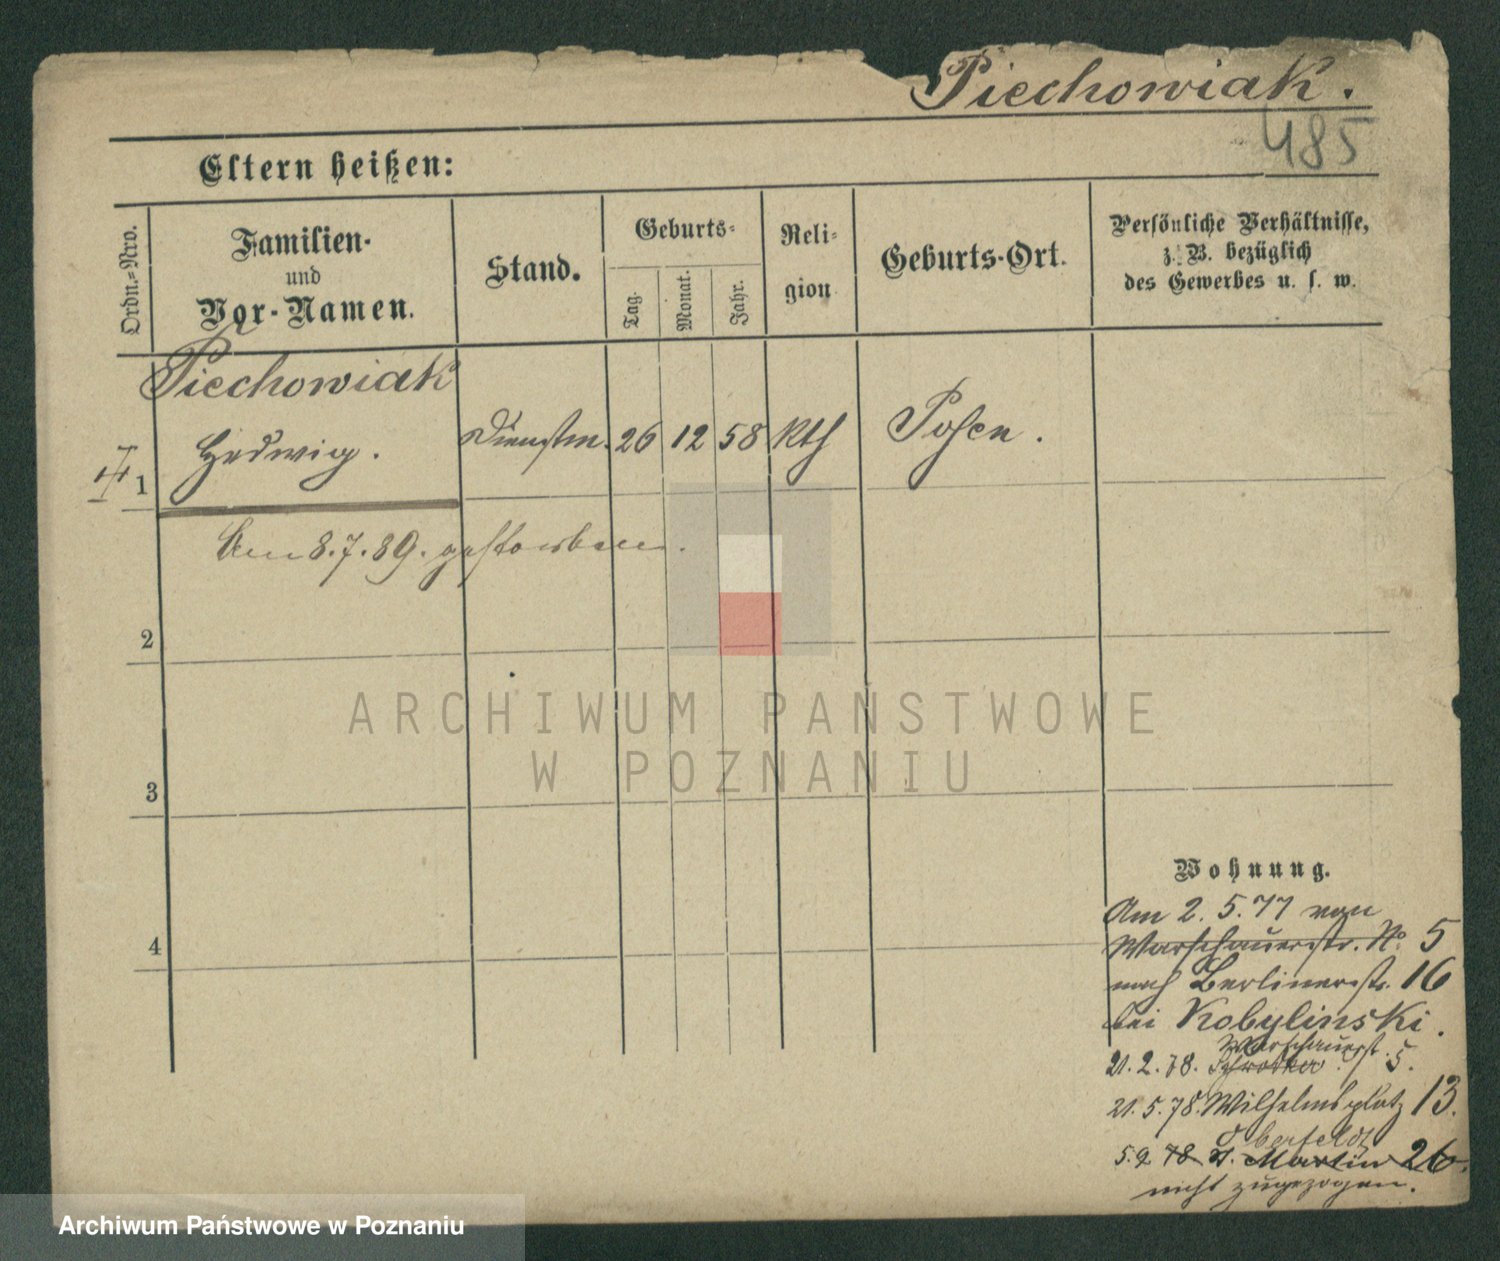 Piechowiak.
485
Eltern heißen:
Ordn.-Nro.
Familien-
und
Vor-Namen.
Stand.
Geburts-
Tag.
Monat.
Jahr.
Reli-
gion
Geburts-Ort.
Persönliche Verhältnisse,
z. B. bezüglich
des Gewerbes u. s. w.
Piechowiak
Hedwig.
1
Dienstm. 26 12 58 kth Posen.
Am 8.7.89. gestorben.
2
ARCHIWUM PAŃSTWOWE
W POZNANIU
3
4
Wohnung.
Am 2. 5. 77 von
Warschauerstr. No 5
nach Berlinerstr. 16
bei Kobylinski.
Warschauerst.
21. 2. 78. 5.
21. 5. 78. Wilhelmsplatz 13.
5. 9 78 St. Martin 26.
nicht zugezogen.
Archiwum Państwowe w Poznaniu